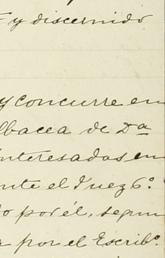 y discernido
y concurre en
lbacea de Dª
interesadas en
nte el Juez 6º.
o por él, segun
por el Escribº.